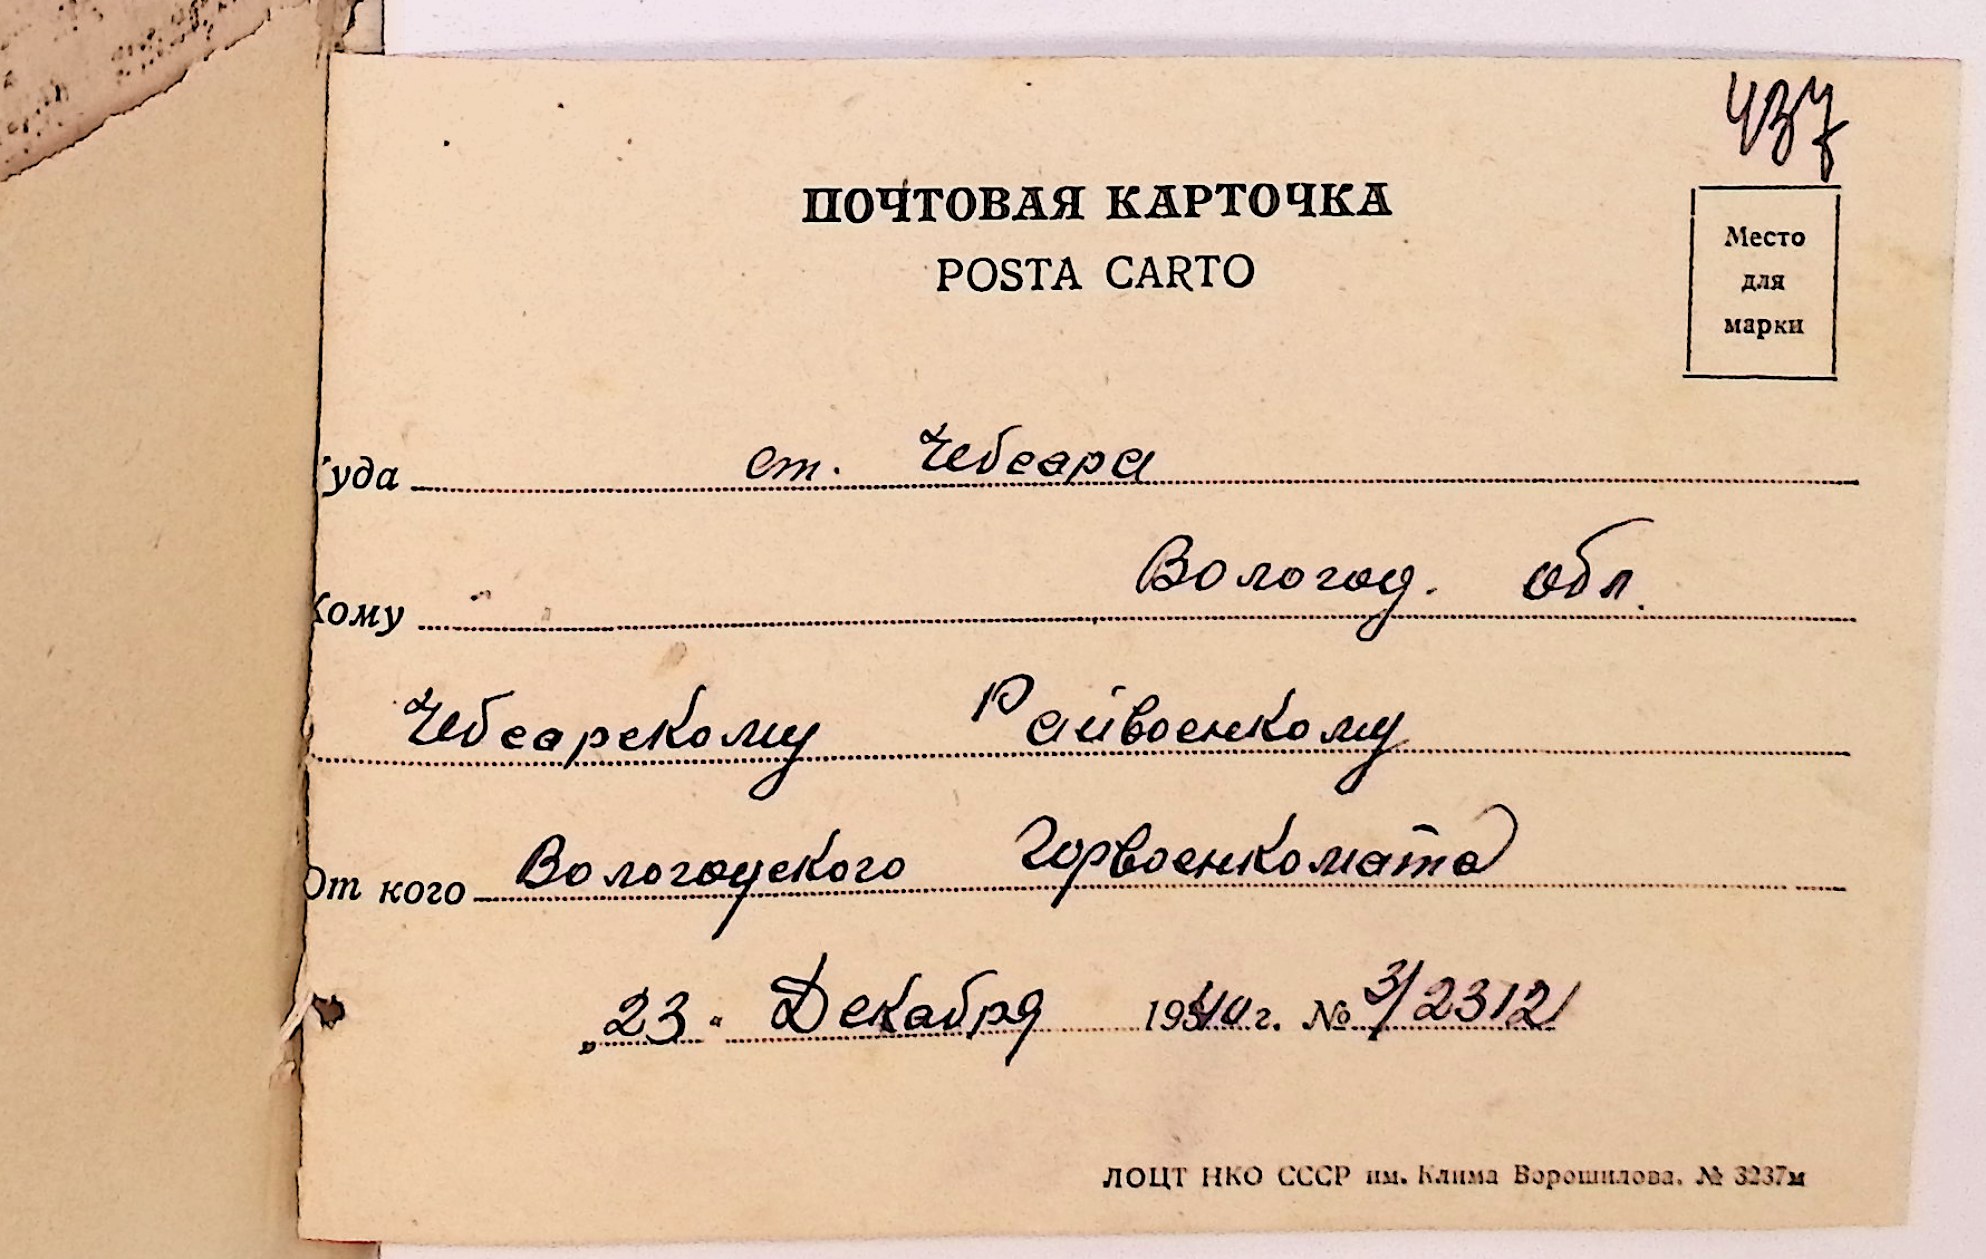 437
ПОЧТОВАЯ КАРТОЧКА
POSTA CARTO
Место
для
марки
Куда ст. Чебсара
Вологод. обл.
Кому
Чебсарскому Райвоенкому
От кого Вологодского Горвоенкомата
„23“ Декабря 1940 г. № 3/2312
ЛОЦТ НКО СССР им. Клима Ворошилова. № 3237м